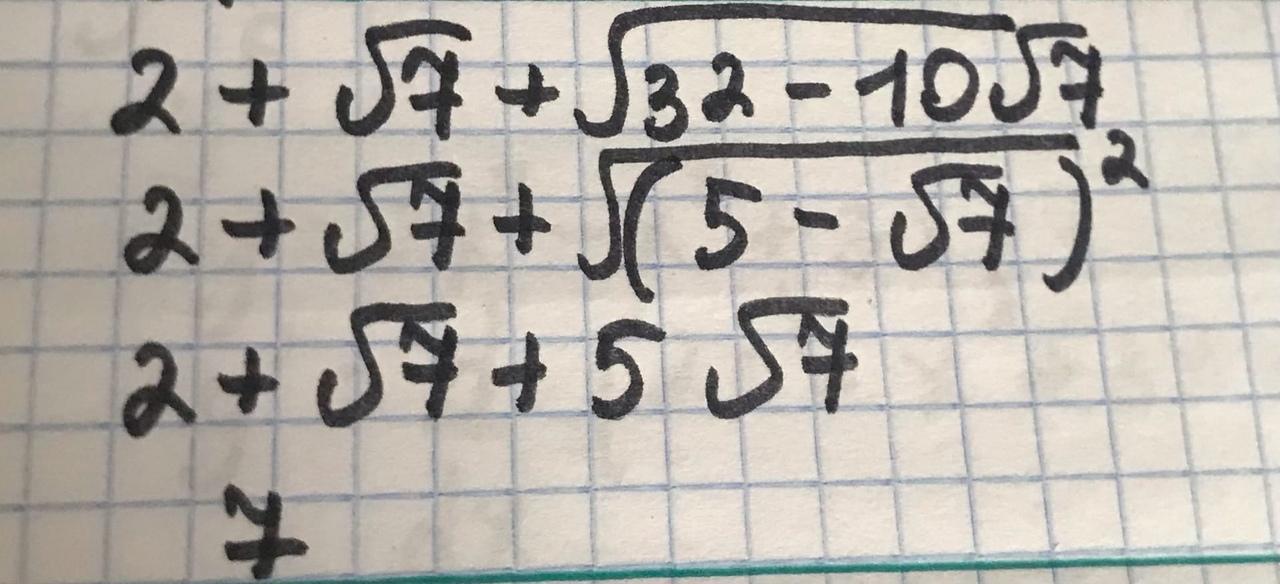 2 + √7 + √32 - 10√7
2 + √7 + √(5 - √7)²
2 + √7 + 5 √7
7